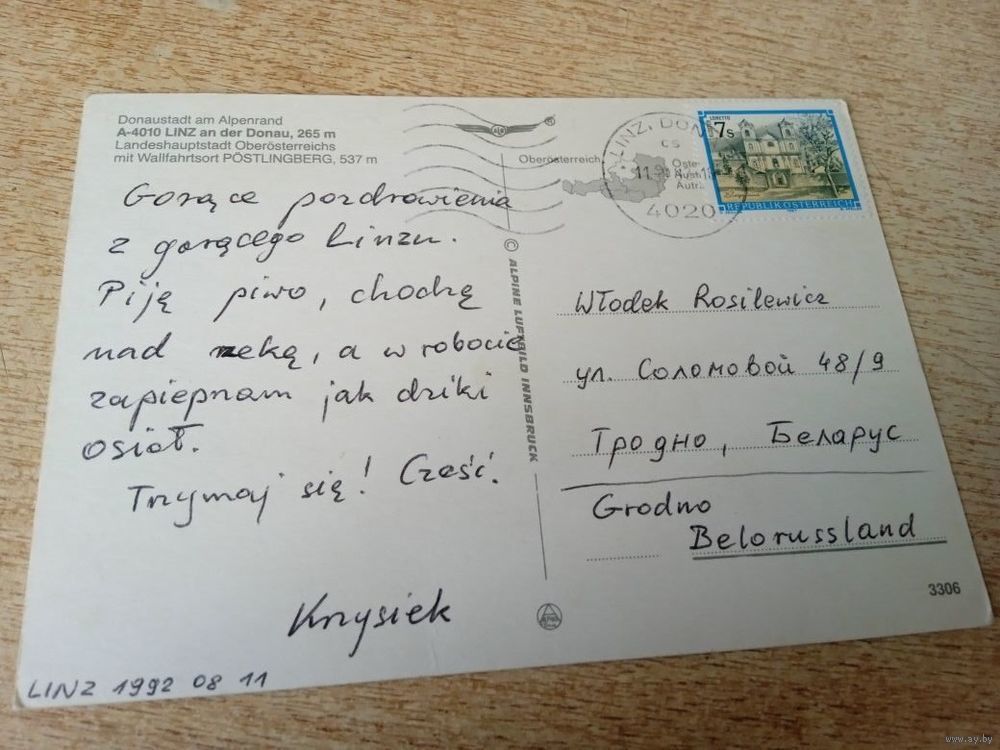 Donaustadt am Alpenrand
A-4010 LINZ an der Donau, 265 m
Landeshauptstadt Oberösterreichs
mit Wallfahrtsort PÖSTLINGBERG, 537 m
Gorące pozdrowienia
z gorącego Linzu.
Piję piwo, chodzę
nad rzeką, a w robocie
zapieprzam jak dziki
osioł.
Trzymaj się! Cześć.
Krzysiek
LINZ 1992 08 11
© ALPINE LUFTBILD INNSBRUCK
Oberösterreich
LINZ, DON
cs
4020
LORETTO
7s
REPUBLIK ÖSTERREICH
Włodek Rosilewicz
ул. Соломовой 48/9
Гродно, Беларус
Grodno
Belorussland
3306
www.ay.by